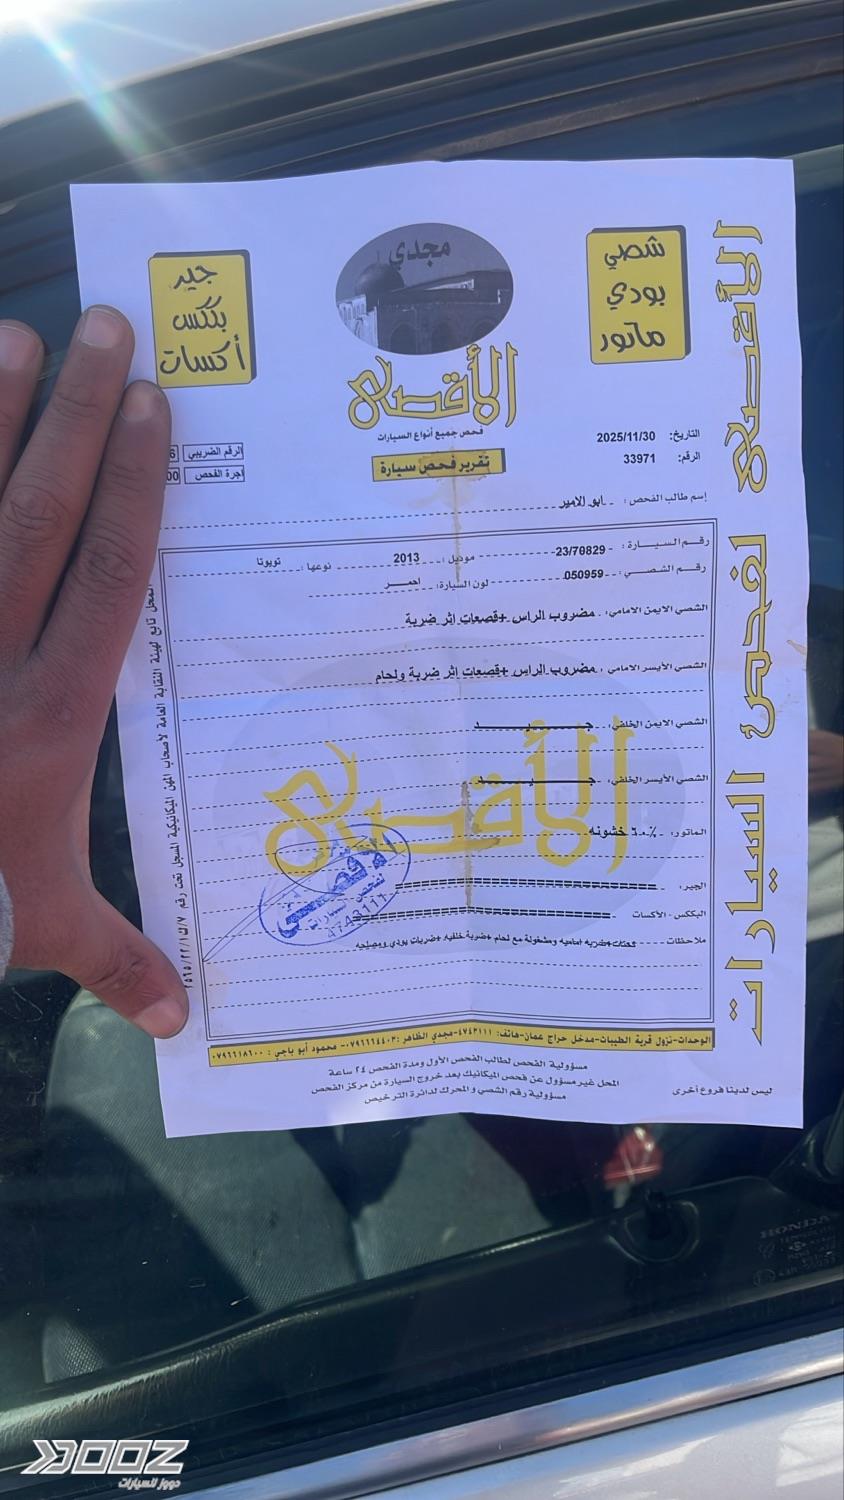 شصي
بودي
ماتور
مجدي
الأقصى
فحص جميع أنواع السيارات
تقرير فحص سيارة
جير
بككس
أكسات
التاريخ: 2025/11/30
الرقم: 33971
الرقم الضريبي
اجرة الفحص
إسم طالب الفحص: ابو الامير
رقم السيارة: 23/70829 موديل: 2013 نوعها: تويوتا
رقم الشصي: 050959 لون السيارة: احمر
الشصي الايمن الامامي: مضروب الراس +قصعات اثر ضربة
الشصي الأيسر الامامي: مضروب الراس +قصعات اثر ضربة ولحام
الشصي الايمن الخلفي: جيد
الشصي الأيسر الخلفي: جيد
الماتور: ٦٠٪ خشونه
الجير:
البككس - الأكسات
ملاحظات
الأقصى
الأقصى
لفحص السيارات
4743111
الأقصى لفحص السيارات
المحل تابع لهيئة النقابة العامة لأصحاب المهن الميكانيكية المسجل تحت رقم
الوحدات-نزول قرية الطيبات-مدخل حراج عمان-هاتف: ٤٧٤٣١١١-مجدي الظاهر: ٠٧٩٦٦٦٤٤٠٣- محمود أبو باجي: ٠٧٩٦٦١٨٦٠٠
مسؤولية الفحص لطالب الفحص الأول ومدة الفحص ٢٤ ساعة
المحل غير مسؤول عن فحص الميكانيك بعد خروج السيارة من مركز الفحص
مسؤولية رقم الشصي و المحرك لدائرة الترخيص
ليس لدينا فروع أخرى
HONDA
DOOZ
دووز للسيارات